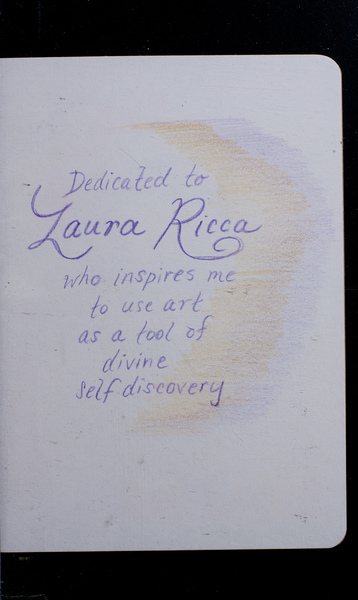 Dedicated to
Laura Ricca
who inspires me
to use art
as a tool of
divine
self discovery